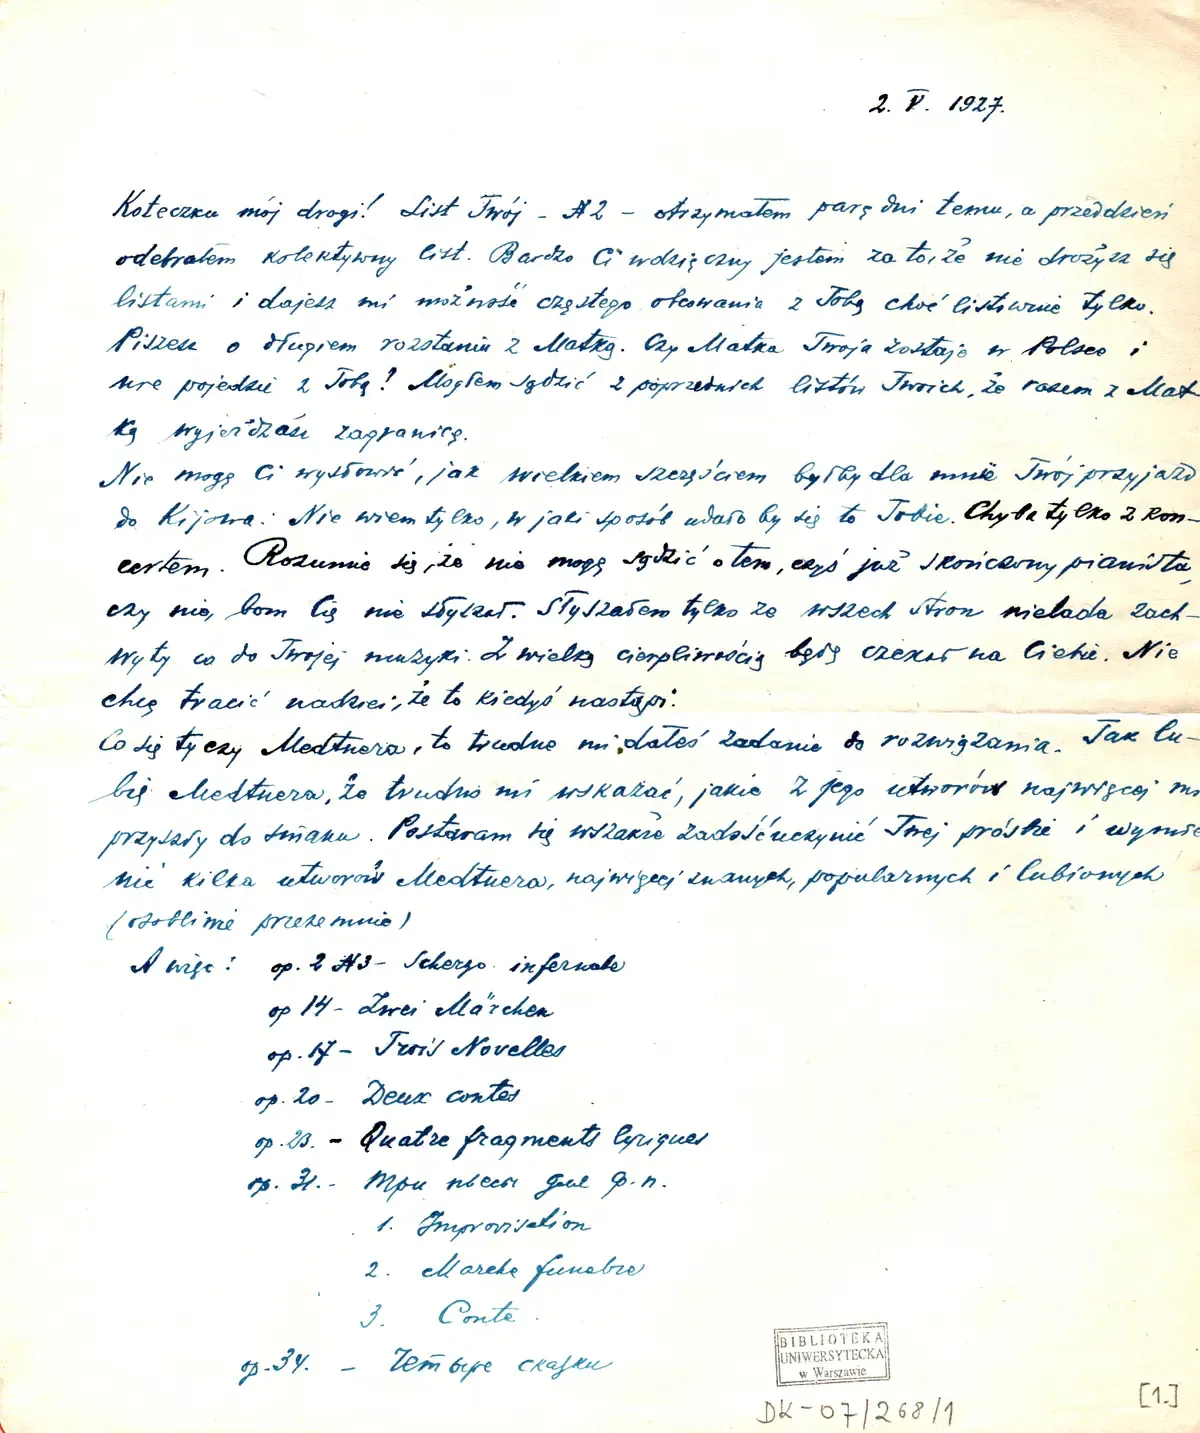 2. V. 1927.
Koteczku mój drogi! List Twój - #2 - otrzymałem parę dni temu, a przeddzień
odebrałem kolektywny list. Bardzo Ci wdzięczny jestem za to, że nie drożysz się
listami i dajesz mi możność częstego obcowania z Tobą choć listownie tylko.
Piszesz o długiem rozstaniu z Matką. Czy Matka Twoja zostaje w Polsce i
nie pojedzie z Tobą? Mogłem sądzić z poprzednich listów Twoich, że razem z Mat-
ką wyjeżdżasz zagranicę.
Nie mogę Ci wysłowić, jak wielkiem szczęściem byłby dla mnie Twój przyjazd
do Kijowa. Nie wiem tylko, w jaki sposób udało by się to Tobie. Chyba tylko z kon-
certem. Rozumie się, że nie mogę sądzić o tem, czyś już skończony pianista,
czy nie, bom Cię nie słyszał. Słyszałem tylko ze wszech stron nielada zach-
wyty co do Twojej muzyki. Z wielką cierpliwością będę czekał na Ciebie. Nie
chcę tracić nadziei, że to kiedyś nastąpi.
Co się tyczy Medtnera, to trudne mi dałeś zadanie do rozwiązania. Tak lu-
bię Medtnera, że trudno mi wskazać, jakie z jego utworów najwięcej mi
przyszły do smaku. Postaram się wszakże zadośćuczynić Twej prośbie i wymie
nić kilka utworów Medtnera, najwięcej znanych, popularnych i lubionych
(osobliwie przezemnie)
A więc: op. 2 #3 - Scherzo infernale
op 14 - Zwei Märchen
op. 17 - Trois Novelles
op. 20 - Deux contes
op. 23. - Quatre fragments lyriques
op. 31. - Три пьесы для ф.п.
1. Improvisation
2. Marche funebre
3. Conte.
op. 34. - Четыре сказки
BIBLIOTEKA
UNIWERSYTECKA
w Warszawie
DK-07/268/1
[1.]